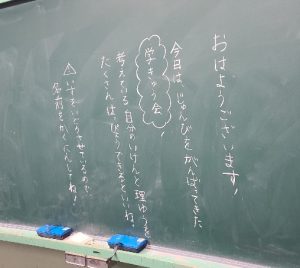 おはようございます！
今日は、じゅんびをがんばってきた
学きゅう会！
考えている自分のいけんと理ゆうを
たくさんはっぴょうできるといいね。
△いすをいどうさせているので
名前をかくにんしてね！